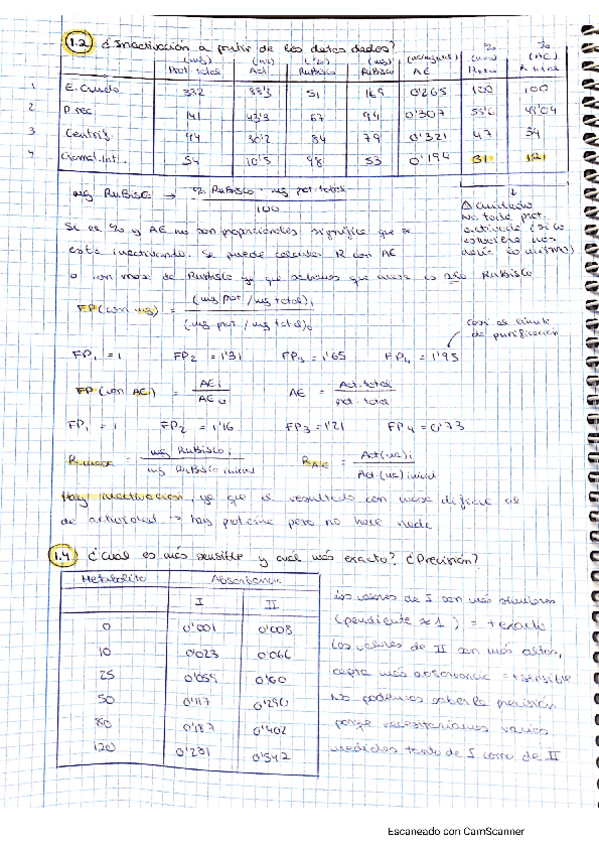 1.2 ¿Inactivación a partir de los datos dados?
(mg) (UA) (%) (mg) (UA/mg tot) % (mg) % (AE)
Prot totales Act RuBisCo RuBisCo AE R
1 E. Crudo 332 88'3 51 169 0'265 100 100
2 P. sec 141 43'3 67 94 0'307 55'6 49'04
3 Centrif. 94 30'2 84 79 0'321 47 34
4 54 10'5 98 53 0'194 31 12
mg RuBisCo → % RuBisCo · mg prot. totales / 100
Si el % y AE no son proporcionales significa que se
está inactivando. Se puede calcular R con AE
o con masa de RuBisCo ya que sabemos que RuBisCo
⚠ cuidado
No toda prot.
activada (si lo
estuviera nos
daría lo mismo)
FP (con mg) = (mg prot / mg total)i / (mg prot / mg total)o
casi el límite
de purificación
FP1 = 1 FP2 = 1'31 FP3 = 1'65 FP4 = 1'93
FP (con AE) = AEi / AEo AE = Act. total / prot. total
FP1 = 1 FP2 = 1'16 FP3 = 1'21 FP4 = 0'73
R masa = mg RuBisCo i / mg RuBisCo inicial R AE = Act (UA) i / Act (UA) inicial
Hay inactivación, ya que el resultado con masa difiere al
de actividad → hay proteína pero no hace nada
1.4 ¿Cuál es más sensible y cuál más exacto? ¿Precisión?
Metabolito Absorbancia
I II
0 0'001 0'008
10 0'023 0'066
25 0'059 0'160
50 0'117 0'290
80 0'187 0'402
120 0'281 0'542
Los valores de I son más
(pendiente ≈ 1) = + exacto
Los valores de II son más altos,
capta más absorbancia = + sensible
No podemos saber la precisión
porque necesitaríamos varias
medidas tanto de I como de II
Escaneado con CamScanner